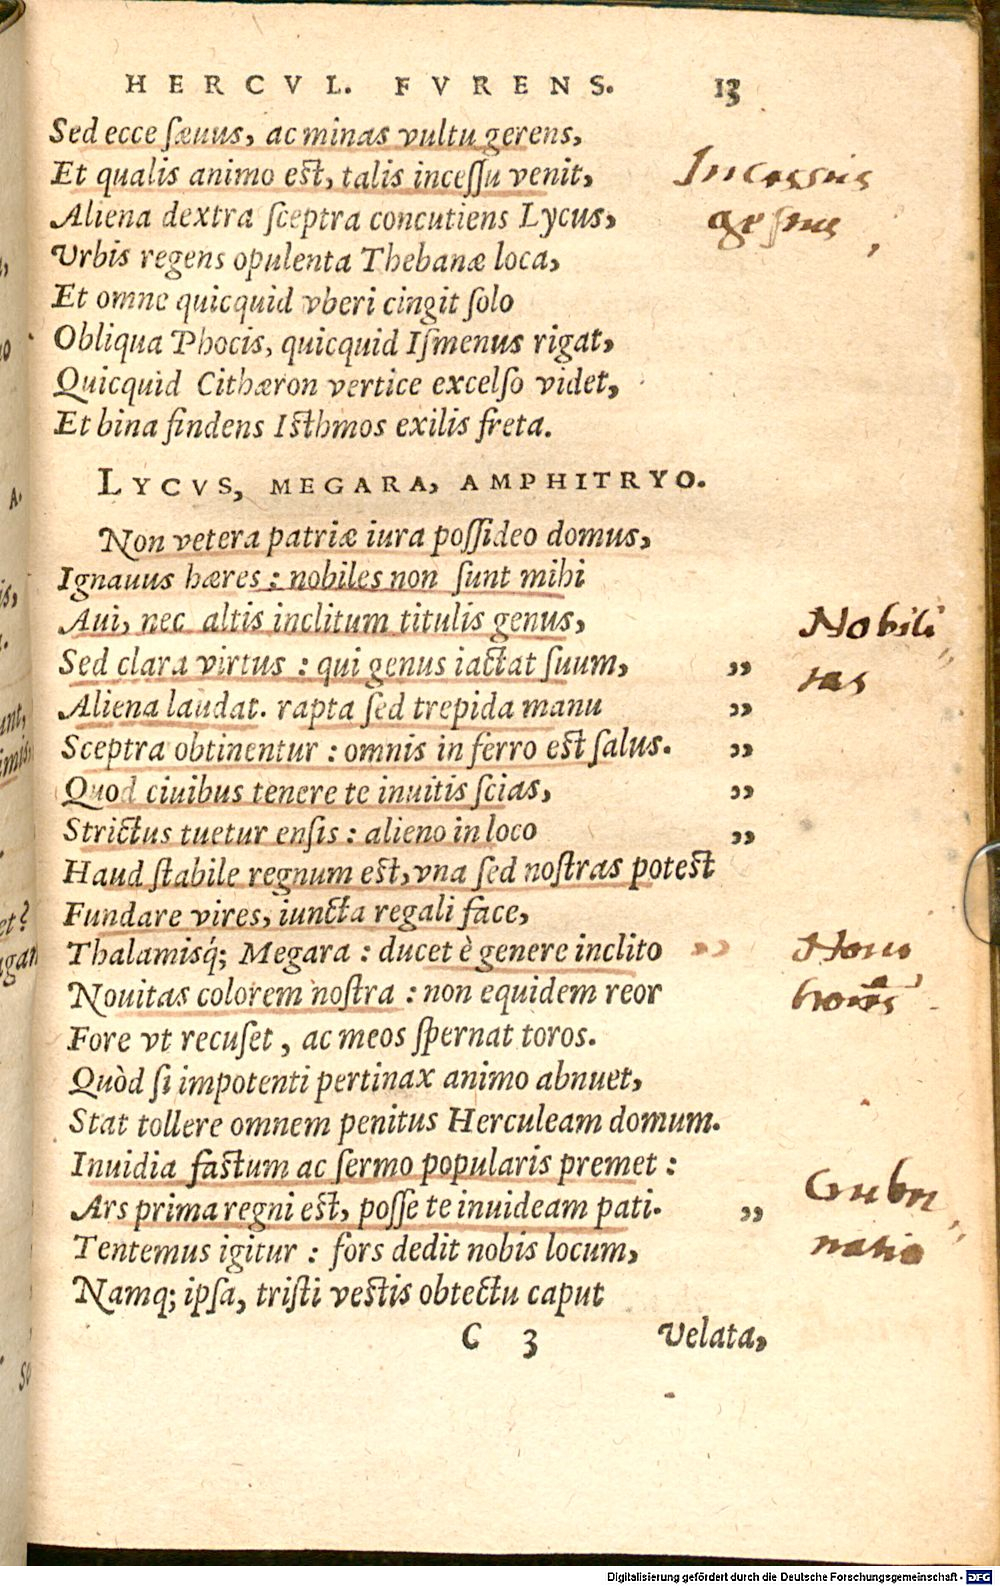 HERCVL. FVRENS. 13
Sed ecce sæuus, ac minas vultu gerens,
Et qualis animo est, talis incessu venit,
Incessus
Aliena dextra sceptra concutiens Lycus,
gestus,
Vrbis regens opulenta Thebanæ loca,
Et omne quicquid vberi cingit solo
Obliqua Phocis, quicquid Ismenus rigat,
Quicquid Cithæron vertice excelso videt,
Et bina findens Isthmos exilis freta.
LYCVS, MEGARA, AMPHITRYO.
Non vetera patriæ iura possideo domus,
Ignauus hæres : nobiles non sunt mihi
Aui, nec altis inclitum titulis genus,
Nobili
Sed clara virtus : qui genus iactat suum, „
tas
Aliena laudat. rapta sed trepida manu „
Sceptra obtinentur : omnis in ferro est salus. „
Quod ciuibus tenere te inuitis scias, „
Strictus tuetur ensis : alieno in loco „
Haud stabile regnum est, vna sed nostras potest
Fundare vires, iuncta regali face,
Thalamisq́; Megara : ducet è genere inclito
Nouitas colorem nostra : non equidem reor
Fore vt recuset, ac meos spernat toros.
Quòd si impotenti pertinax animo abnuet,
Stat tollere omnem penitus Herculeam domum.
Inuidia factum ac sermo popularis premet :
Ars prima regni est, posse te inuideam pati. „
Gubr
Tentemus igitur : fors dedit nobis locum,
natio
Namq; ipsa, tristi vestis obtectu caput
C 3 Velata,
Digitalisierung gefördert durch die Deutsche Forschungsgemeinschaft - DFG